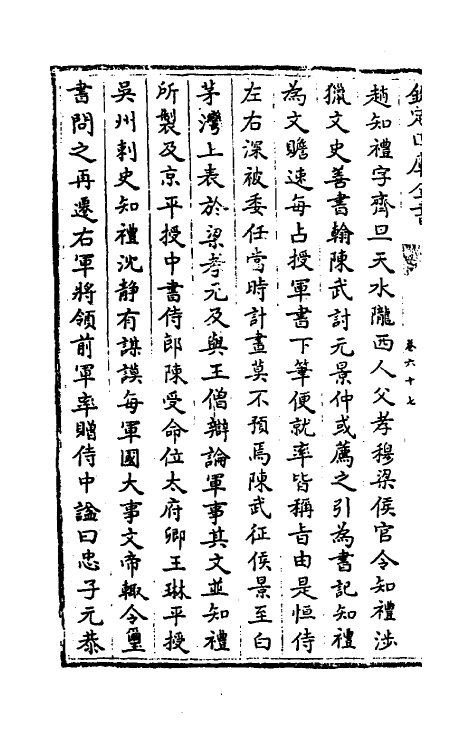 欽定四庫全書
卷六十七
趙知禮字齊旦天水隴西人父孝穆梁侯官令知禮涉
獵文史善書翰陳武討元景仲或薦之引為書記知禮
為文贍速每占授軍書下筆便就率皆稱旨由是恒侍
左右深被委任當時計畫莫不預焉陳武征侯景至白
茅灣上表於梁孝元及與王僧辯論軍事其文並知禮
所製及京平授中書侍郎陳受命位太府卿王琳平授
吳州刺史知禮沈静有謀謨每軍國大事文帝輙令璽
書問之再遷右軍將領前軍率贈侍中諡曰忠子元恭